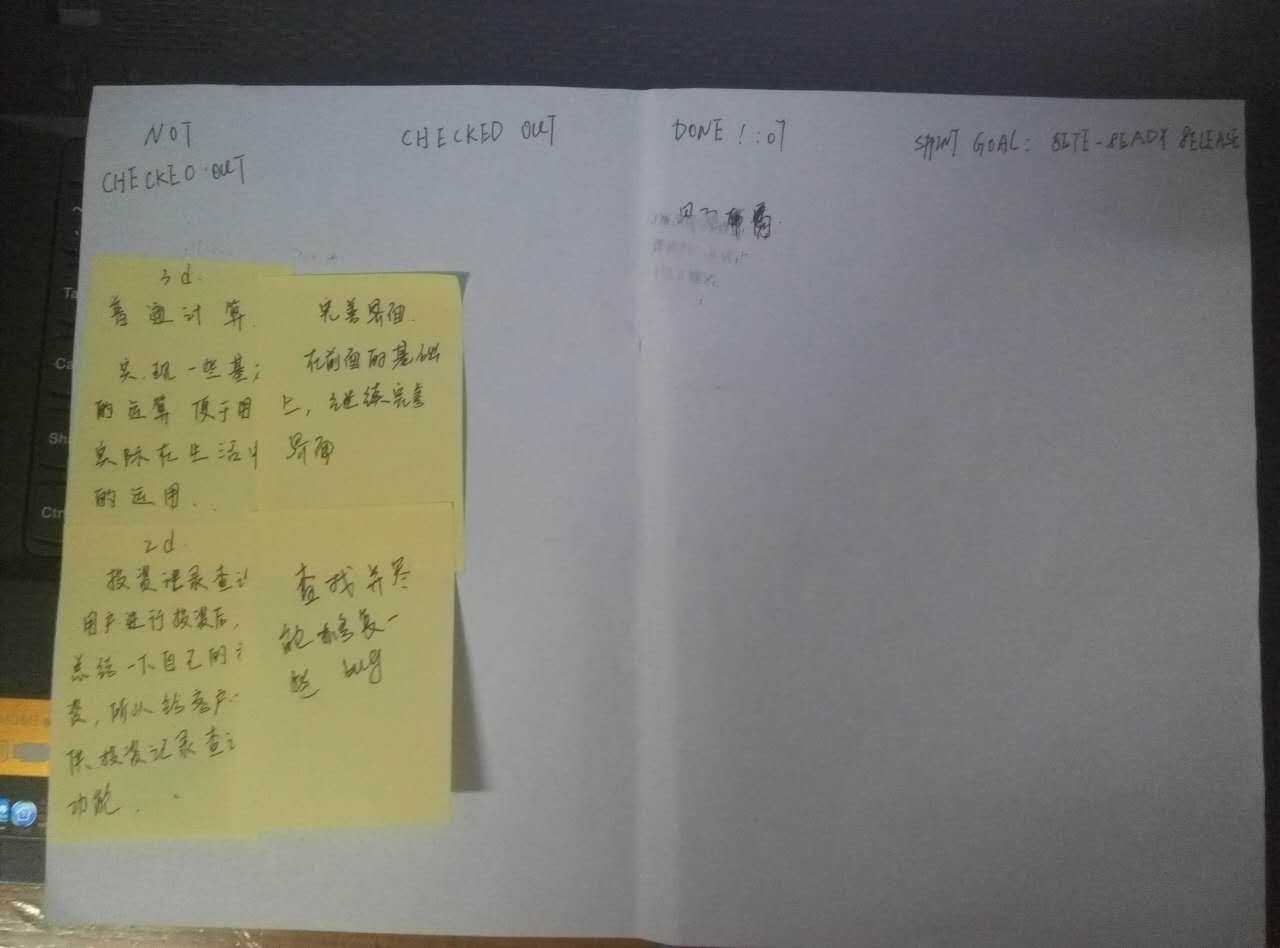 NOT
CHECKED OUT
CHECKED OUT
DONE ! :07
GOAL:
3d.
普通计算.
实现一些基
的运算 便于用
实际在生活
的运用.
完善界面.
在前面的基础
上，继续完善
界面
2d.
投资记录查
用户进行投资后，
总结一下自己的
资，所以给客户
供投资记录查
功能.
查找并尽
能修复一
些 bug
Ta
Ca
Sh
Ctr